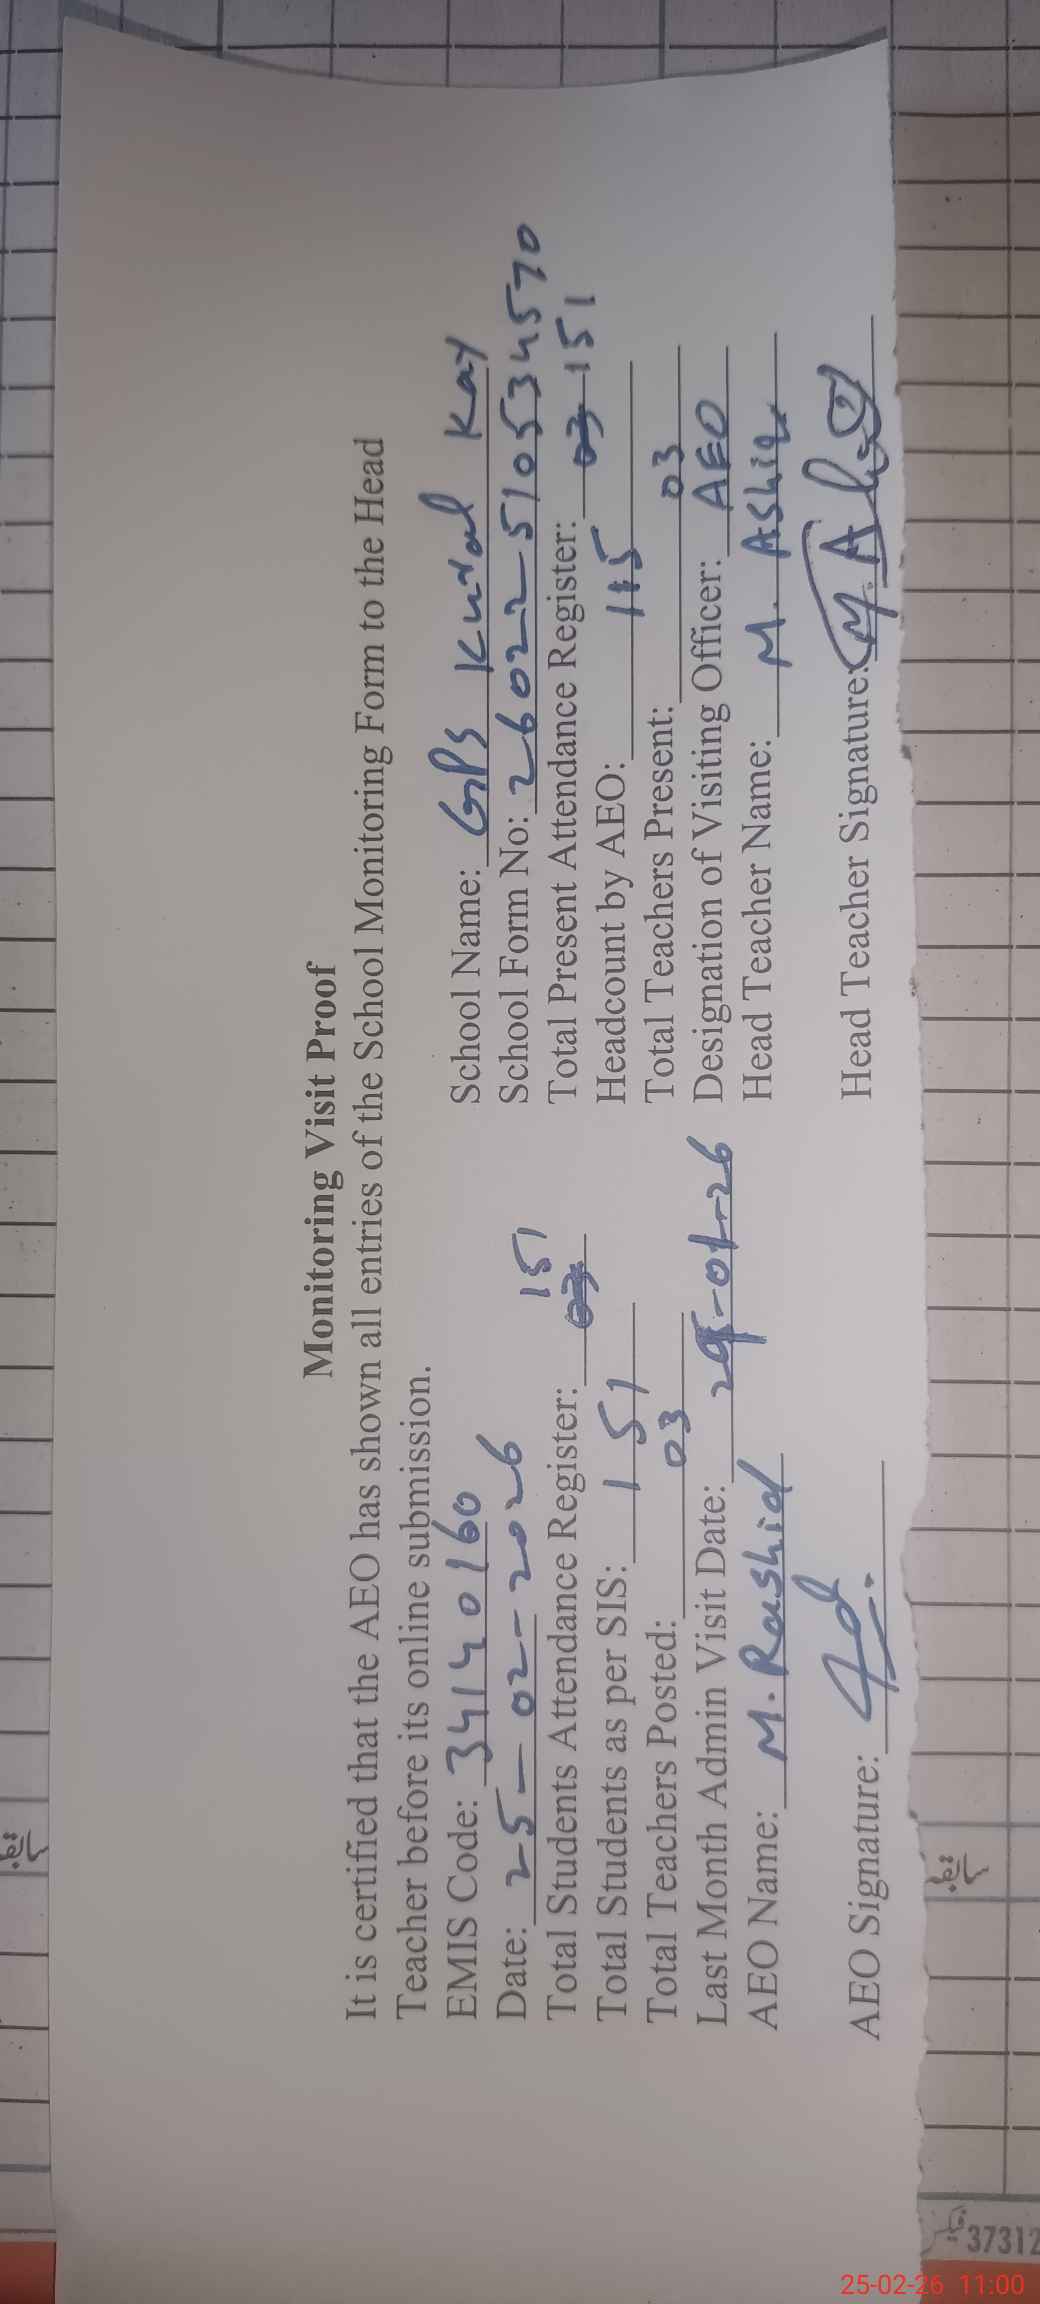 Monitoring Visit Proof
It is certified that the AEO has shown all entries of the School Monitoring Form to the Head
Teacher before its online submission.
EMIS Code: 34140160
School Name: GPS Kutal Kay
Date: 25-02-2026
School Form No: 26022510534570
Total Students Attendance Register: 03 151
Total Present Attendance Register: 03 151
Total Students as per SIS: 151
Headcount by AEO: 115
Total Teachers Posted: 03
Total Teachers Present: 03
Last Month Admin Visit Date: 29-01-26
Designation of Visiting Officer: AEO
AEO Name: M. Rashid
Head Teacher Name: M. Ashiq
AEO Signature:
Head Teacher Signature: M. A
سابقہ
سابقہ
37312
25-02-26 11:00